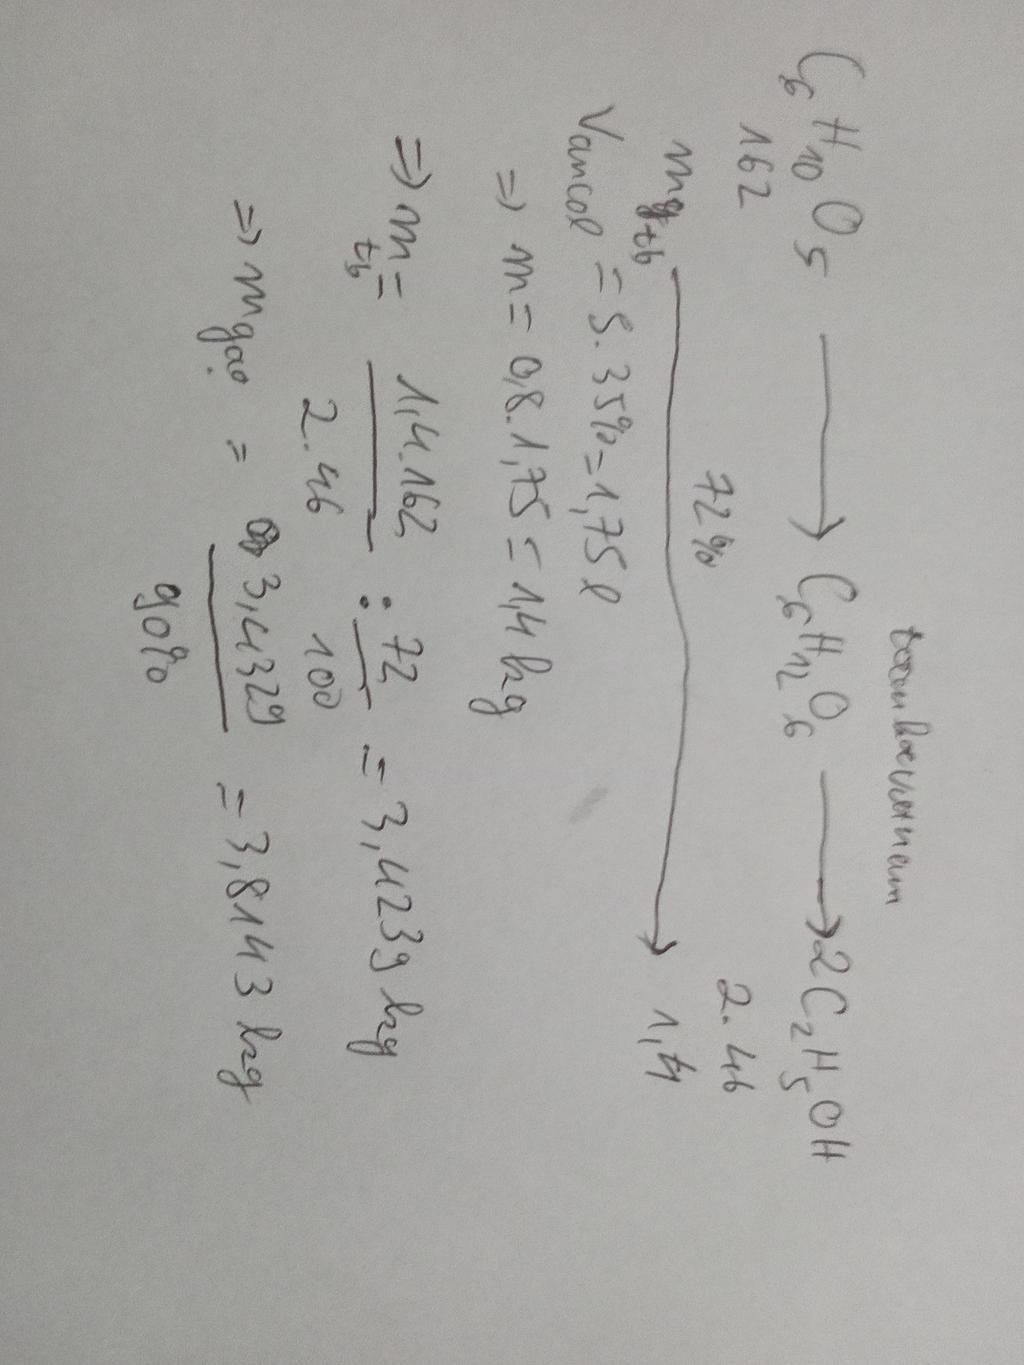 C₆H₁₀O₅ → C₆H₁₂O₆ → 2C₂H₅OH
162 2.46
72%
m tb → 1,4
Vancol = 5.35% = 1,75 l
=> m = 0,8.1,75 = 1,4 kg
=> m tb = 1,4.162 / 2.46 : 72 / 100 = 3,4239 kg
=> m gạo = 3,4329 / 90% = 3,8143 kg